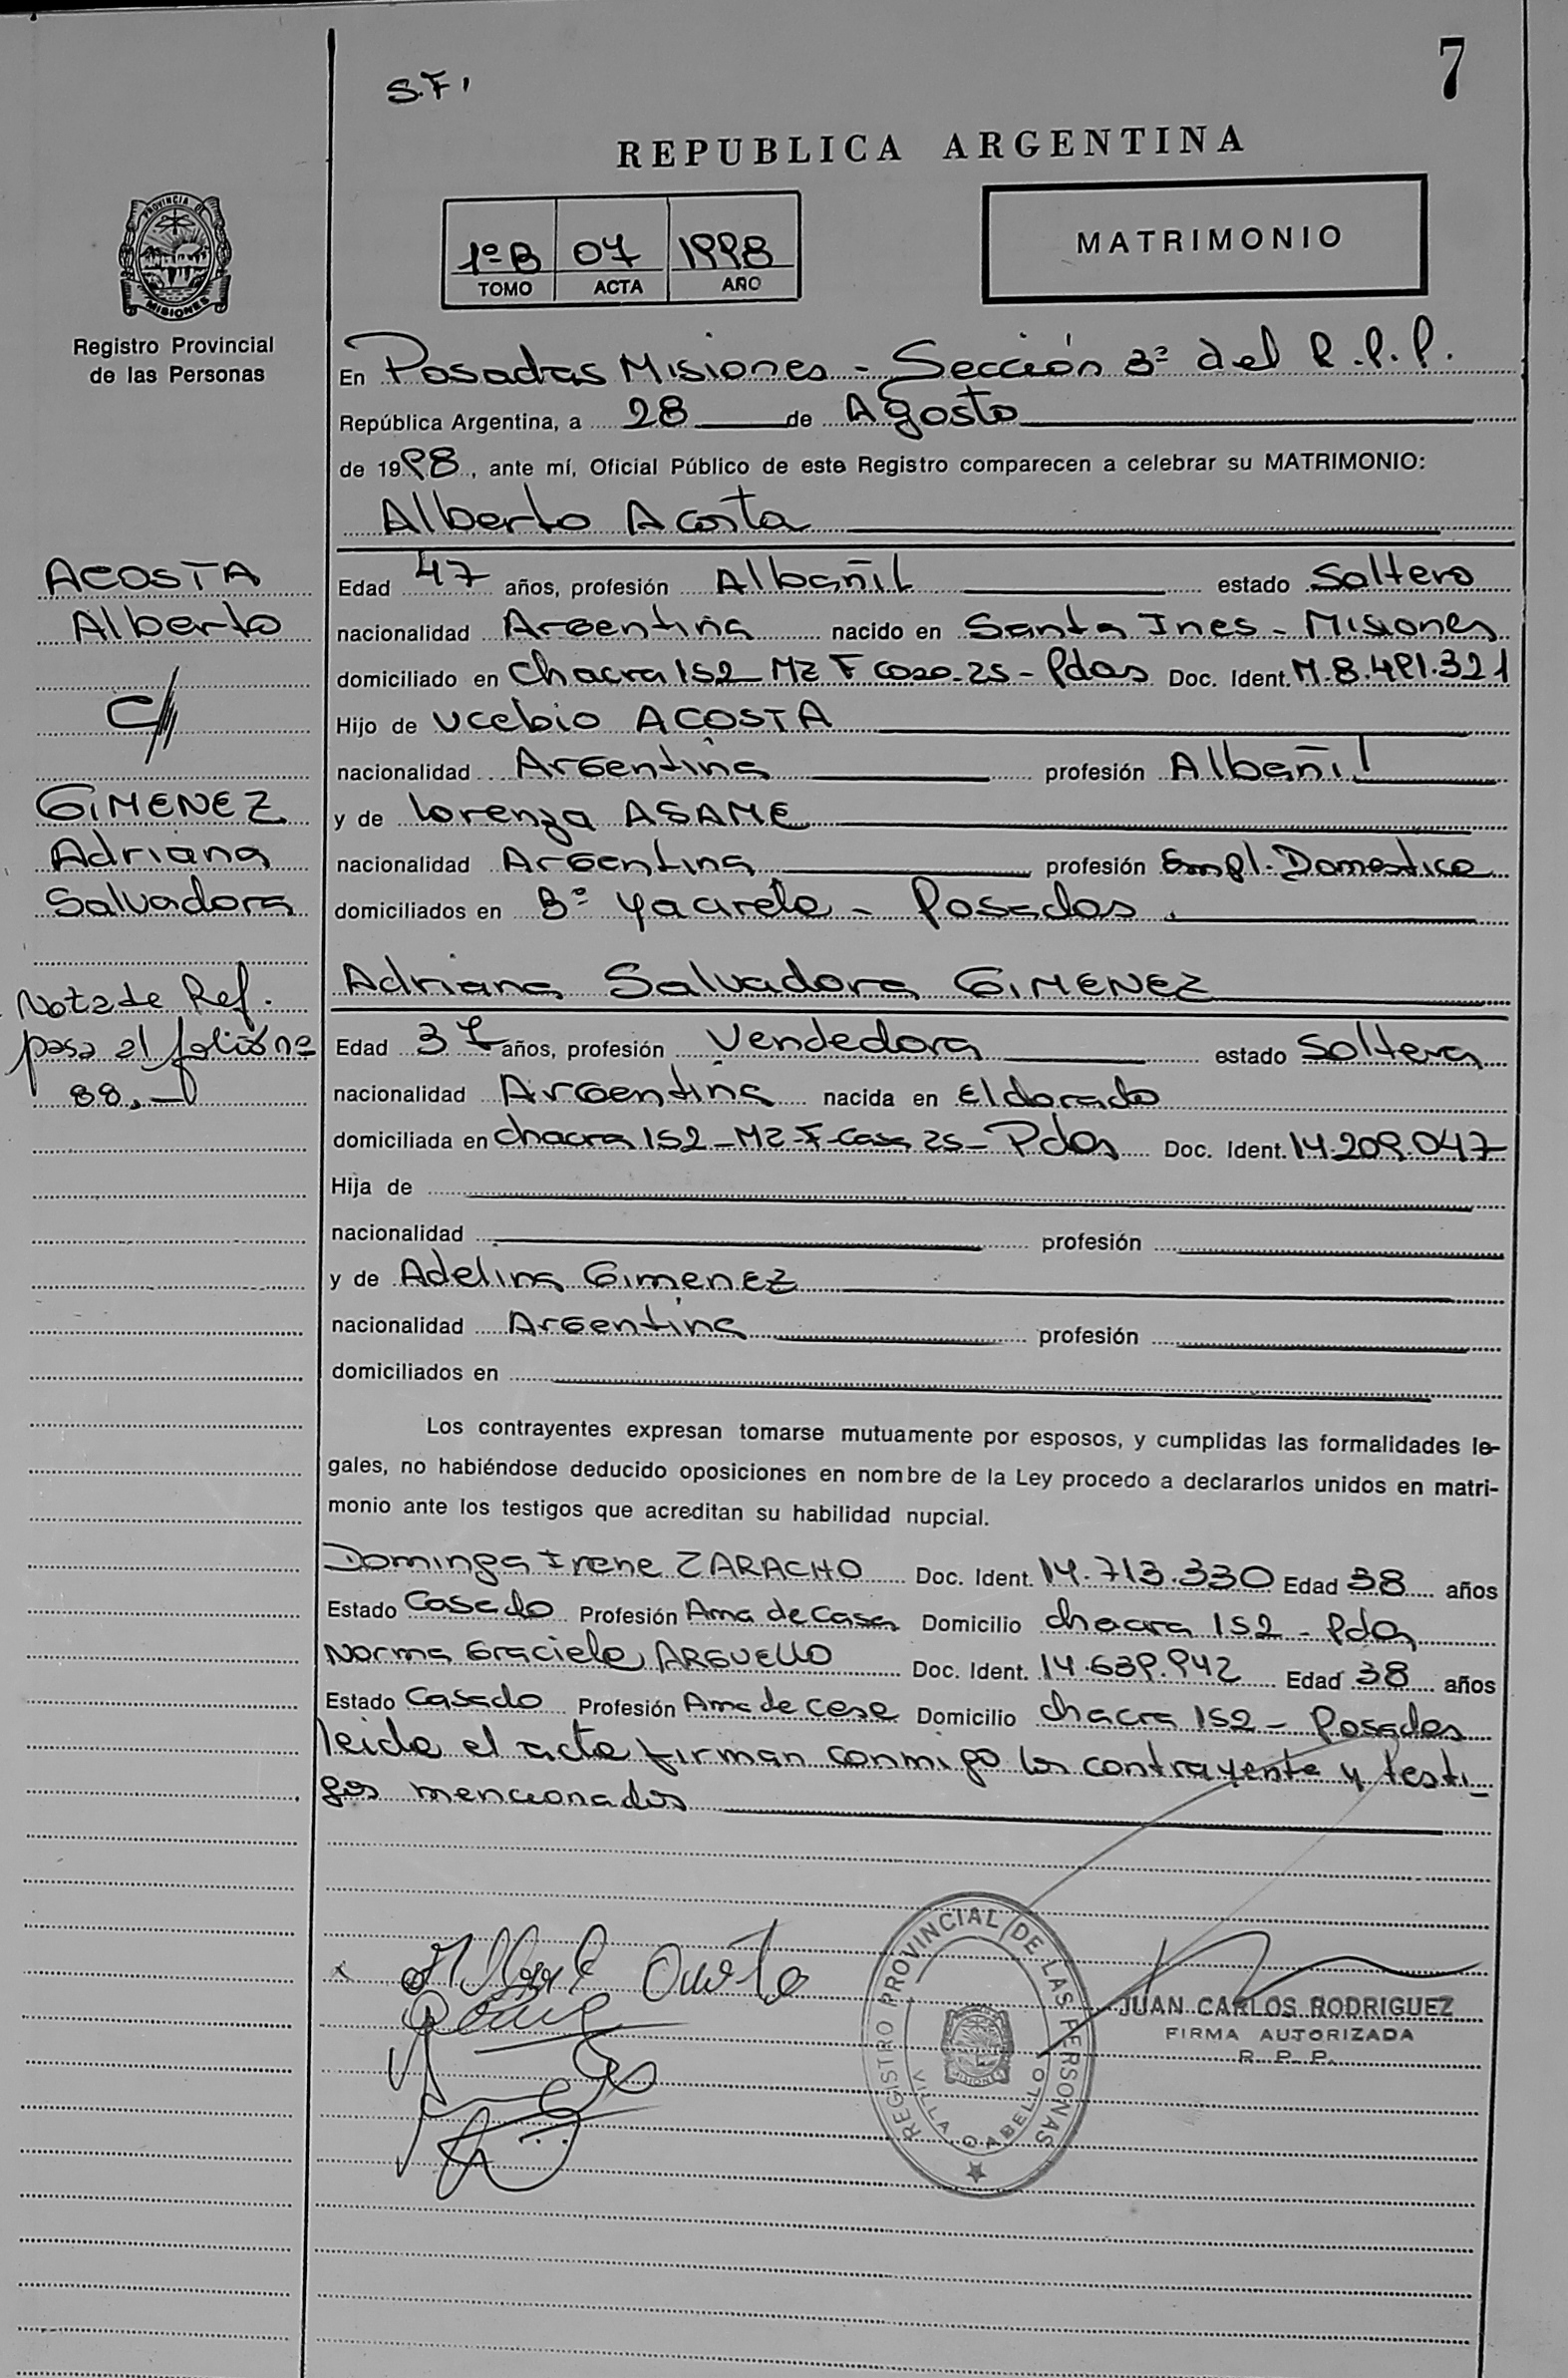 7
S.F.
REPUBLICA ARGENTINA
PROVINCIA DE
MISIONES
Registro Provincial
de las Personas
1º B 07 1998
TOMO ACTA AÑO
MATRIMONIO
En Posadas Misiones - Sección 3ª del R.P.P.
República Argentina, a 28 de Agosto
de 1998, ante mí, Oficial Público de este Registro comparecen a celebrar su MATRIMONIO:
Alberto Acosta
ACOSTA
Alberto
c/
GIMENEZ
Adriana
Salvadora
Nota de Ref.
pasa al folio nº
88.-
Edad 47 años, profesión Albañil estado Soltero
nacionalidad Argentina nacido en Santa Ines - Misiones
domiciliado en chacra 152 Mz F casa 25 - Pdas Doc. Ident. M.8.491.321
Hijo de Ucebio ACOSTA
nacionalidad Argentina profesión Albañil
y de Lorenza ASAME
nacionalidad Argentina profesión Empl. Domestica
domiciliados en Bº Yacirete - Posadas
Adriana Salvadora GIMENEZ
Edad 37 años, profesión Vendedora estado Soltera
nacionalidad Argentina nacida en Eldorado
domiciliada en chacra 152 - Mz - F - Casa 25 - Pdas Doc. Ident. 14.209.047
Hija de
nacionalidad profesión
y de Adelina Gimenez
nacionalidad Argentina profesión
domiciliados en
Los contrayentes expresan tomarse mutuamente por esposos, y cumplidas las formalidades le-
gales, no habiéndose deducido oposiciones en nombre de la Ley procedo a declararlos unidos en matri-
monio ante los testigos que acreditan su habilidad nupcial.
Dominga Irene ZARACHO Doc. Ident. 14.713.330 Edad 38 años
Estado Casado Profesión Ama de Casa Domicilio chacra 152 - Pdas
Norma Graciela ARGUELLO Doc. Ident. 14.639.942 Edad 38 años
Estado Casado Profesión Ama de casa Domicilio chacra 152 - Posadas
leida el acta firman conmigo los contrayente y testi-
gos mencionados
REGISTRO PROVINCIAL DE LAS PERSONAS
VILLA CABELLO
MISIONES
JUAN CARLOS RODRIGUEZ
FIRMA AUTORIZADA
R. P. P.